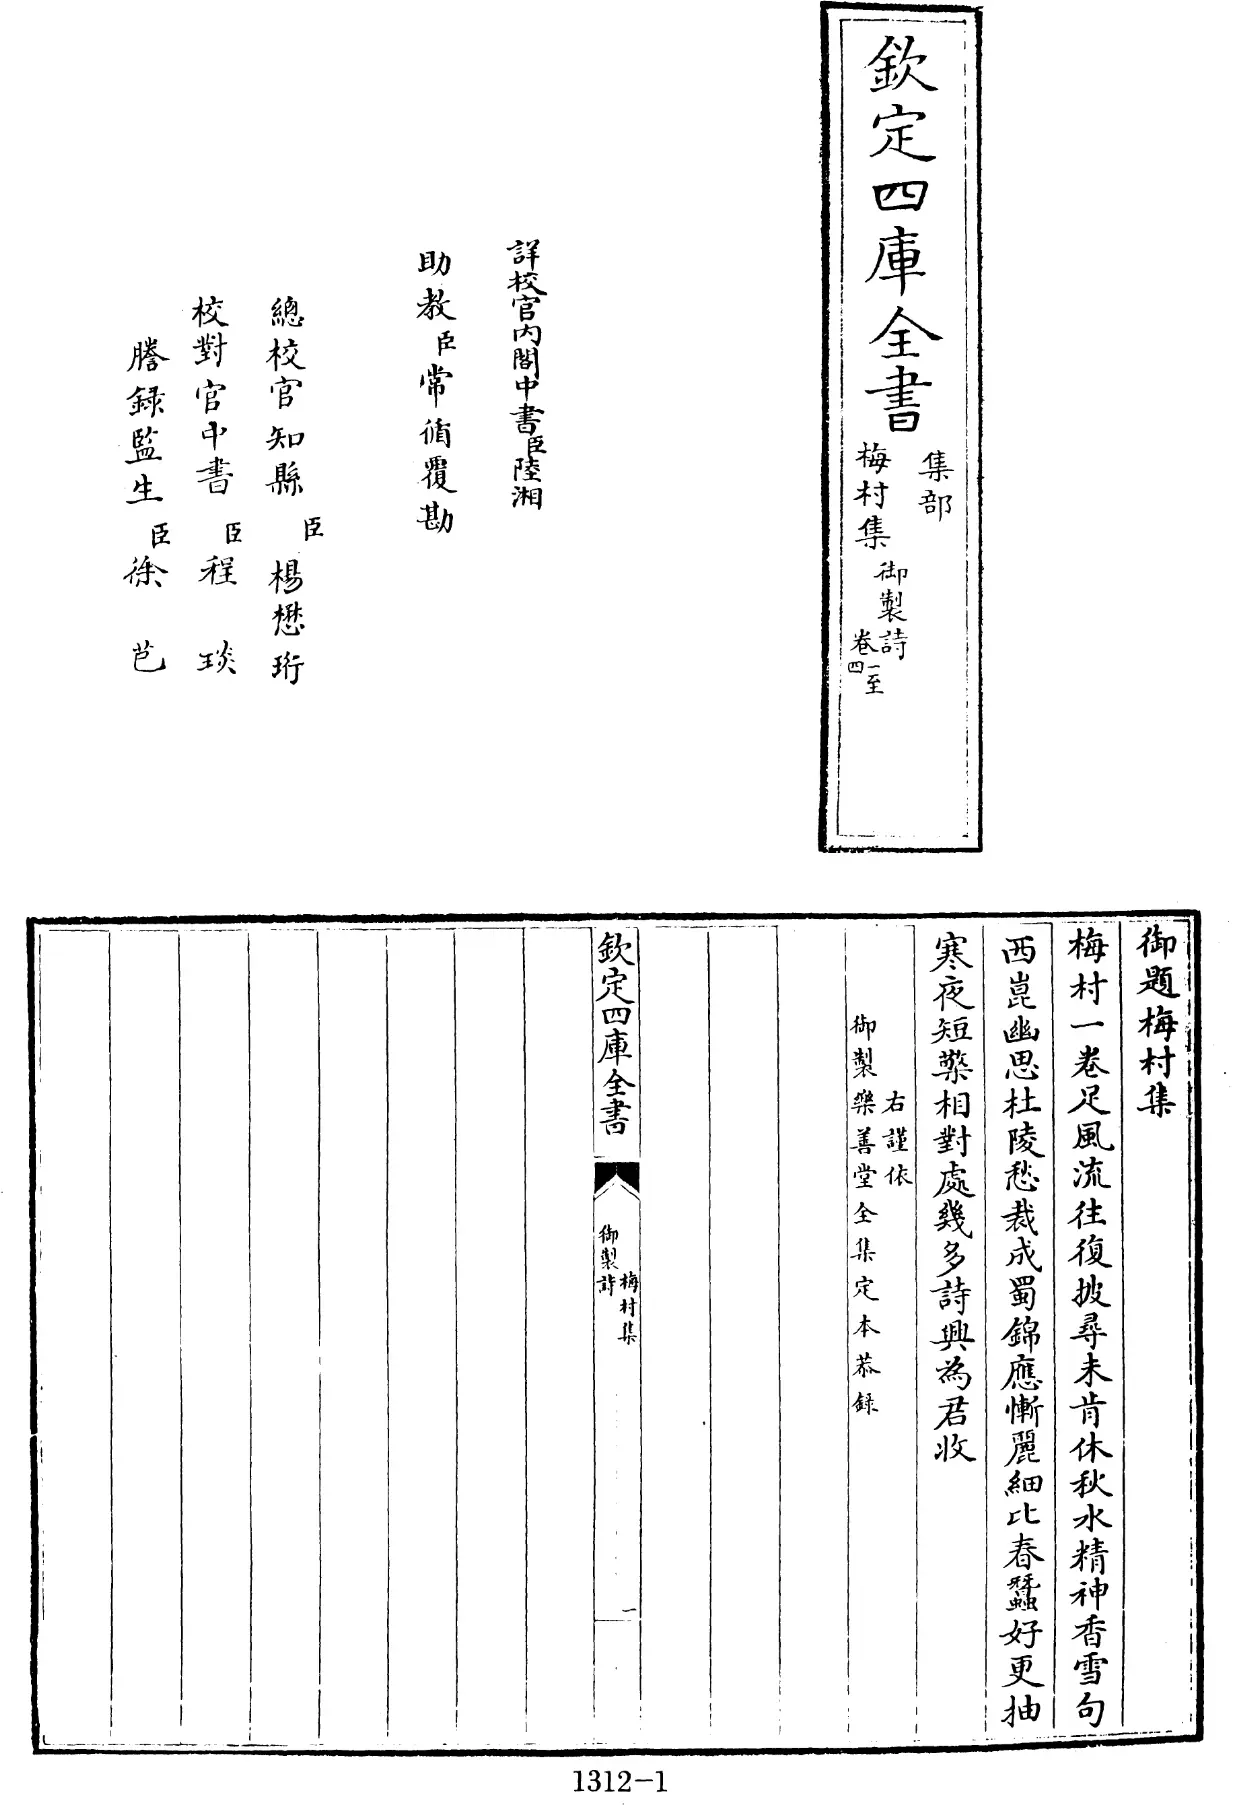 欽定四庫全書
集部
梅村集
御製詩
卷一至
四
詳校官内閣中書臣陸湘
助教臣常循覆勘
總校官知縣臣楊懋珩
校對官中書臣程琰
謄録監生臣徐芑
御題梅村集
梅村一卷足風流往復披尋未肯休秋水精神香雪句
西崑幽思杜陵愁裁成蜀錦應慚麗細比春蠶好更抽
寒夜短檠相對處幾多詩興為君收
右謹依
御製樂善堂全集定本恭録
欽定四庫全書
梅村集
御製詩
一
1312-1